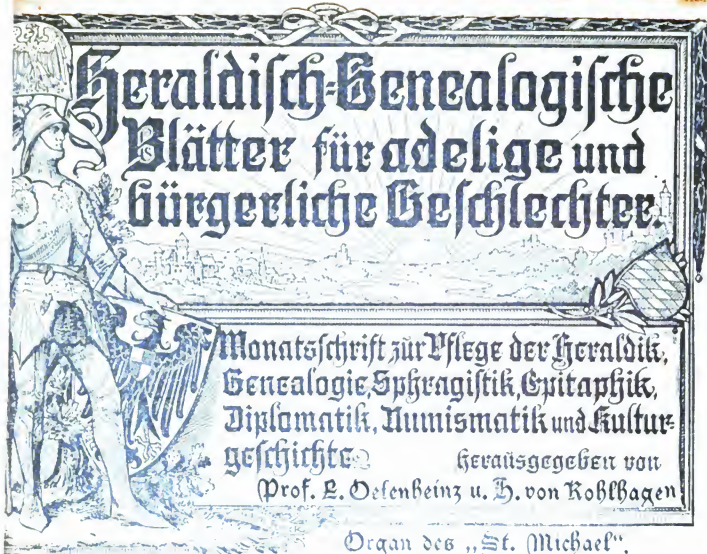 Heraldisch-Genealogische
Blätter für adelige und
bürgerliche Geschlechter.
Monatsschrift zur Pflege der Heraldik,
Genealogie, Sphragistik, Epitaphik,
Diplomatik, Numismatik und Kultur-
geschichte
herausgegeben von
Prof. L. Oelenheinz u. H. von Kohlhagen
Organ des „St. Michael“.